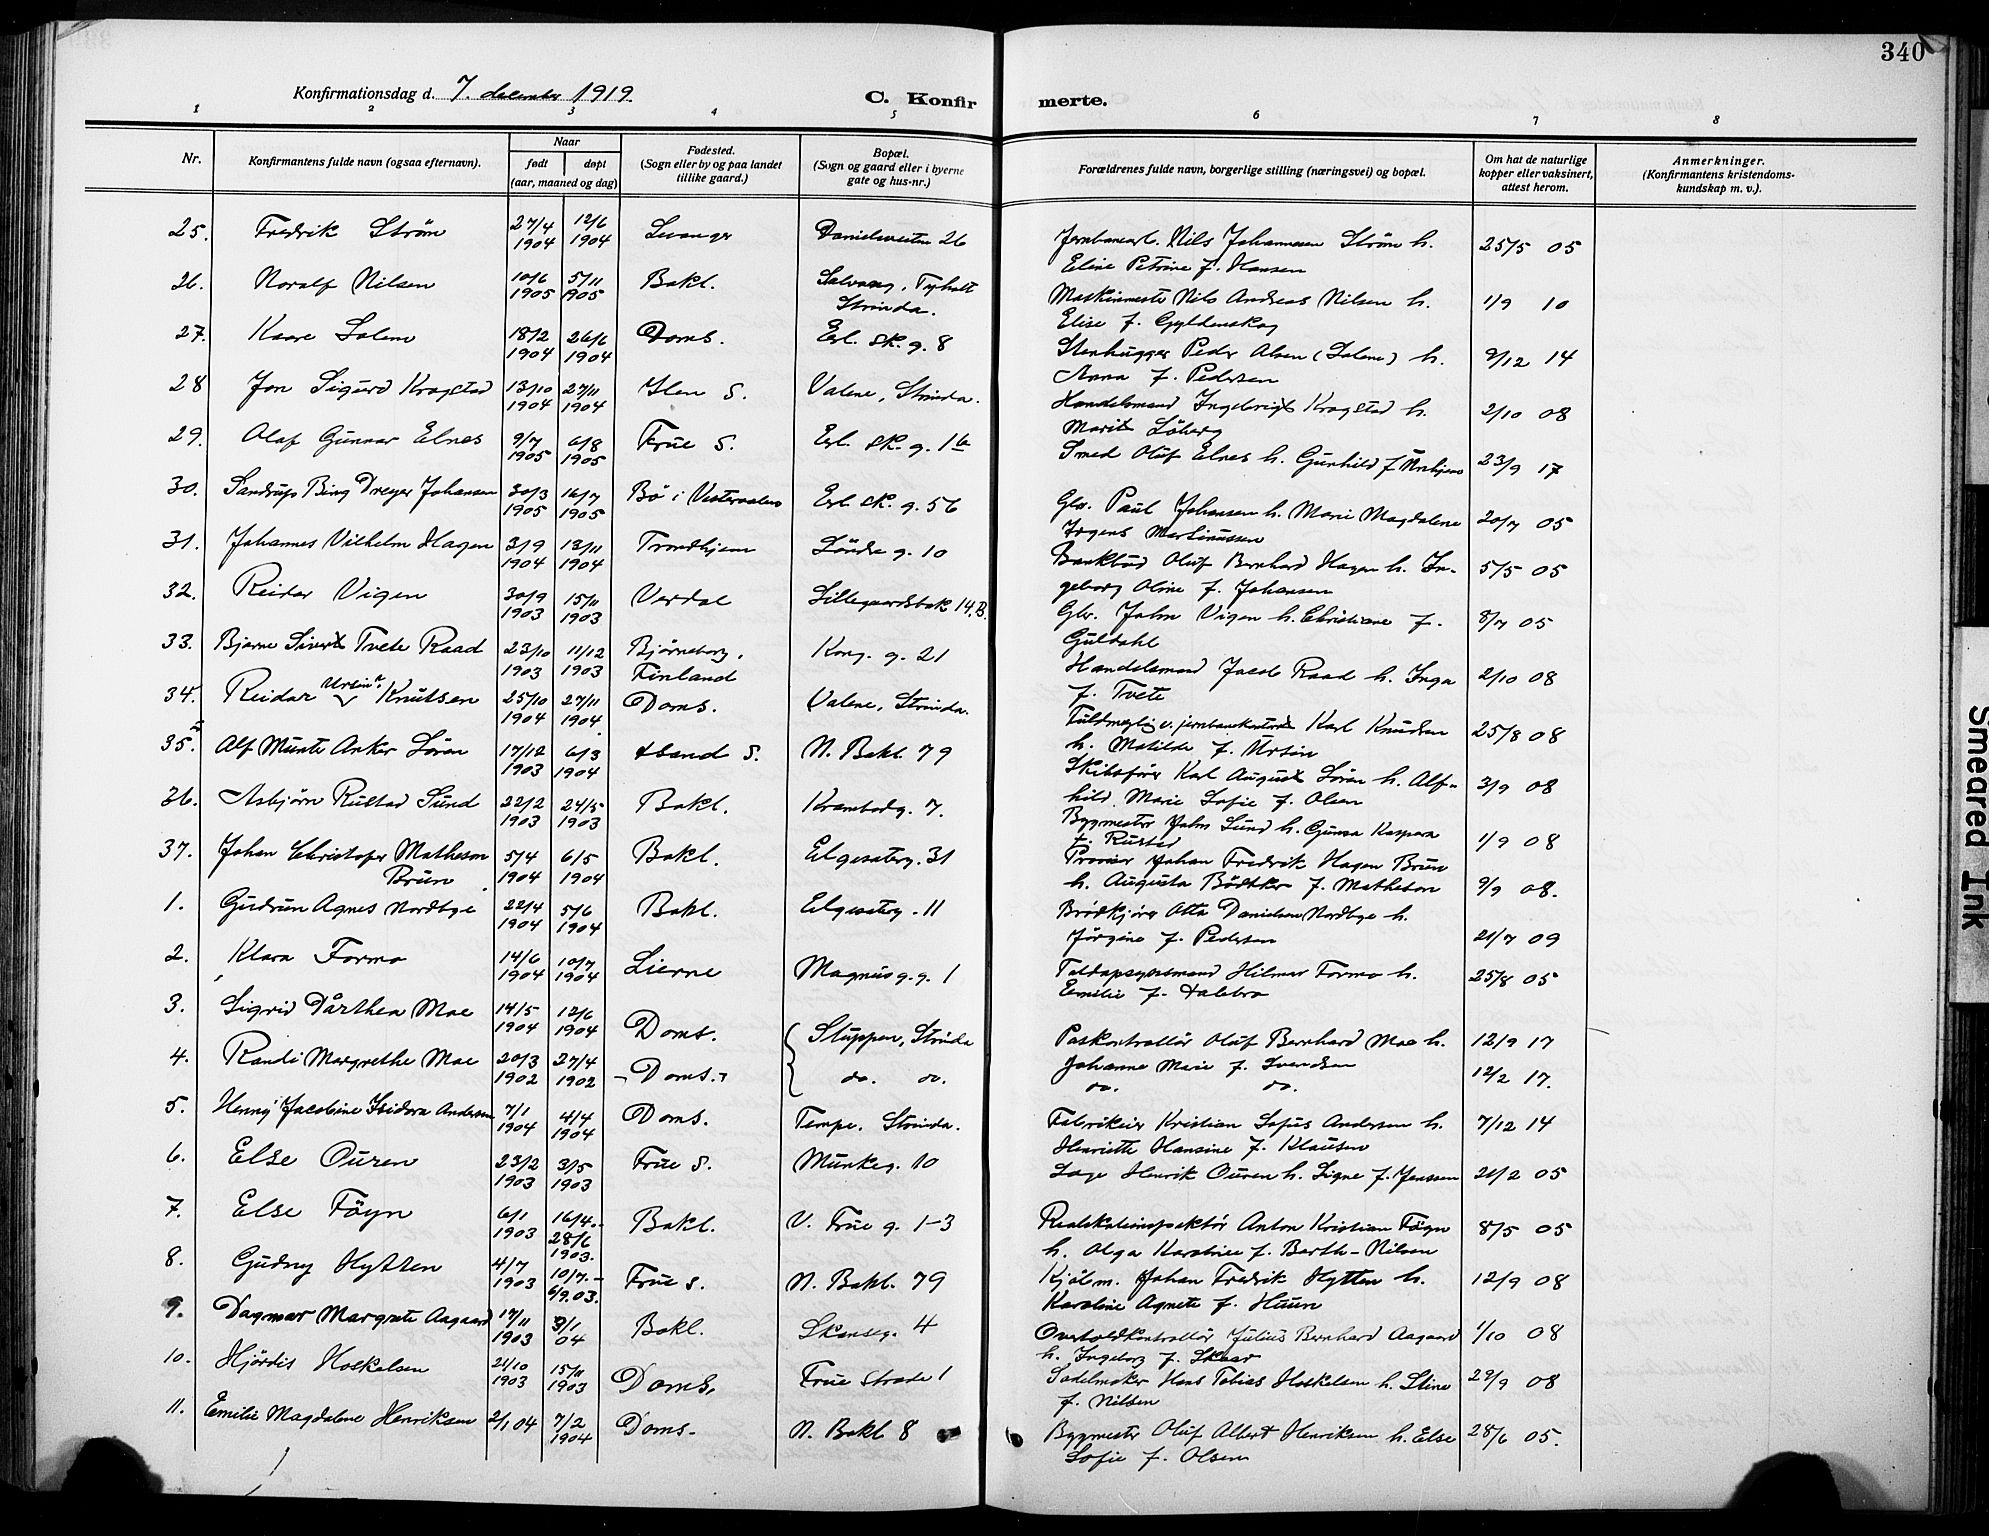 340
Konfirmationsdag d. 7. december 1919.
C. Konfirmerte.
1 2 3 4 5 6 7 8
Nr.
Konfirmantens fulde navn (ogsaa efternavn).
Naar
født
døpt
(aar, maaned og dag)
Fødested.
(Sogn eller by og paa landet
tillike gaard.)
Bopæl.
(Sogn og gaard eller i byerne
gate og hus-nr.)
Forældrenes fulde navn, borgerlige stilling (næringsvei) og bopæl.
Om hat de naturlige
kopper eller vaksinert,
attest herom.
Anmerkninger.
(Konfirmantens kristendoms-
kundskap m. v.).
25. Fredrik Strøm 27/4 1904 12/6 1904 Levanger 26 Jernbanearb. Nils Johannesen Strøm h. Eline Petrine f. Hansen 25/5 05
26. Noralf Nilsen 10/6 1905 5/11 1905 Bakl. Solvang, Tyholt Strinda. Maskinmester Nils Andreas Nilsen h. Elise f. Gyldenskog 1/9 10
27. Kaare Solem 18/2 1904 26/6 1904 Doms. Erl. Sk. g. 8 Stenhugger Peder Olsen (Solem) h. Anna f. Pedersen 9/12 14
28 Jon Sigurd Kragstad 13/10 1904 27/11 1904 Ilen S. Valene, Strinda. Handelsmand Ingebrigt Kragstad h. Marit Løberg 2/10 08
29. Olaf Gunnar Elnes 9/7 1905 6/8 1905 Frue S. Erl. Sk. g. 16 Smed Oluf Elnes h. Gunhild f. 23/9 17
30. Sandrup Bing Dreyer Johansen 30/3 1905 16/7 1905 Bø i Vesteraalen Erl. Sk. g. 56 Gbr. Paul Johansen h. Marie Magdalene Irgens Martinussen 20/7 05
31. Johannes Vilhelm Hagen 3/9 1904 13/11 1904 Trondhjem Søndre g. 10 Bankbud Oluf Bernhard Hagen h. Ingeborg Oline f. Johansen 5/5 05
32. Reidar Vigen 30/9 1903 15/11 1903 Verdal Lillegaardsbak 14.B. Gbr. John Vigen h. Christiane f. Guldahl 8/7 05
33. Bjarne Sivert Tvete Raad 23/10 1903 11/12 1903 Bjørneborg, Finland Kong. g. 21 Handelsmand Jacob Raad h. Inga f. Tvete 2/10 08
34. Reidar Ursin Knutsen 25/10 1904 27/11 1904 Doms. Valene, Strinda. Karl Knudsen h. Matilde f. Ursin 25/8 08
35. Alf Munte Anker Søren 17/12 1903 6/3 1904 Strand S. N. Bakl. 79 Skibsfører Karl August Søren h. Alfhild Marie Sofie f. Olsen 3/9 08
36. Asbjørn Rustad Sund 22/2 1903 24/5 1903 Bakl. Krambodg. 7. Bygmester John Sund h. Gunda Kaspara f. Rustad 1/9 08
37. Johan Christofer Matheson Brun 5/4 1904 6/5 1904 Bakl. Elgesæterg. 31 Provisor Johan Fredrik Hagen Brun h. Augusta Bödtker f. Matheson 9/9 08.
1. Gudrun Agnes Nordbye 22/4 1904 5/6 1904 Bakl. Elgesæterg. 11 Brødkjører Otto Danielsen Nordbye h. Jørgine f. Pedersen 21/7 09
2. Klara Formo 14/6 1904 10/7 1904 Lierne Magnus g. g. 1 Toldopsynsmand Hilmar Formo h. Emilie f. Dalebro 25/8 05
3. Sigrid Dårthea Moe 14/5 1904 12/6 1904 Doms. Stuppen, Strinda Paskontrollør Oluf Bernhard Moe h. Johanne Marie f. Svendsen 12/9 17
4. Randi Margrethe Moe 20/3 1902 27/4 1902 - Doms. - do. do. do. do. 12/2 17.
5. Henny Jacobine Isidora Andersen 7/1 1904 4/4 1904 Doms. Tempe. Strinda. Fabrikeier Kristian Sofus Andersen h. Henriette Hansine f. Klausen 7/12 14
6. Else Ouren 23/2 1903 3/5 1903 Frue S. Munkeg. 10 Læge Henrik Ouren h. Signe f. Jenssen 21/2 05
7. Else Föyn 6/1 1903 16/4 - 28/6 1903. Bakl. V. Frue g. 1-3 Realskoleinspektør Anton Kristian Föyn h. Olga Karoline f. Barth-Nilsen 8/5 05
8. Gudny Hytten 4/7 1903 10/7. - 6/9.03. Frue S. N. Bakl. 79 Kjølm. Johan Fredrik Hytten h. Karoline Agnete f. Huun 12/9 08
9. Dagmar Margrete Aagaard 17/11 1903 3/1 04 Bakl. Skanseg. 4 Overtoldkontrollør Julius Bernhard Aagaard h. Ingeborg f. Skaar 1/10 08
10. Hjørdis Hoskelsen 21/10 1903 15/11 1903 Doms. Frue Stræde 1 Sadelmaker Hans Tobias Hoskelsen h. Stine f. Nilsen 29/9 08
11. Emilie Magdalene Henriksen 2/1 04 7/2 1904 Doms. N. Bakl 8 Bygmester Oluf Albert Henriksen h. Else Sofie f. Olsen 28/6 05.
Smeared Ink